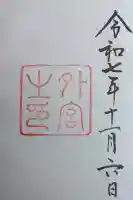 令和七年十一月六日
外宮之印